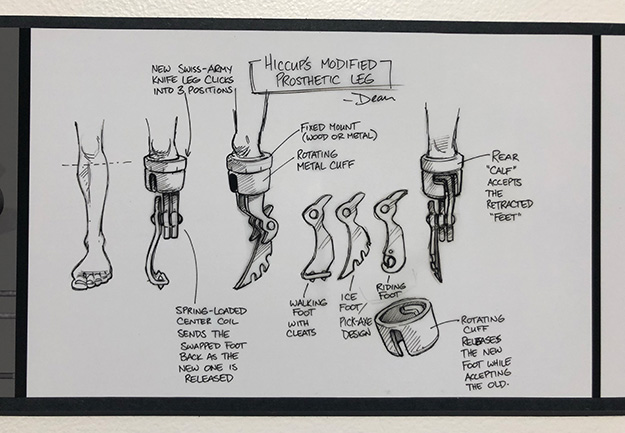 HICCUP'S MODIFIED
PROSTHETIC LEG
-Dean
NEW SWISS-ARMY
KNIFE LEG CLICKS
INTO 3 POSITIONS
FIXED MOUNT
(WOOD OR METAL)
ROTATING
METAL CUFF
REAR
"CALF"
ACCEPTS
THE
RETRACTED
"FEET"
SPRING-LOADED
CENTER COIL
SENDS THE
SWAPPED FOOT
BACK AS THE
NEW ONE IS
RELEASED
WALKING
FOOT
WITH
CLEATS
ICE
FOOT/
PICK-AXE
DESIGN
RIDING
FOOT
ROTATING
CUFF
RELEASES
THE NEW
FOOT WHILE
ACCEPTING
THE OLD.